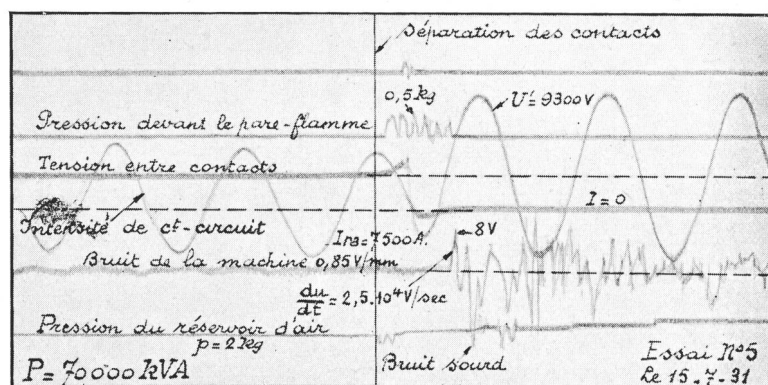 Séparation des contacts
0,5 kg
U'= 9300 V
Pression devant le pare-flamme
Tension entre contacts
I = 0
Intensité de ct-circuit
I = 7500 A.
8V
Bruit de la machine 0,85 V/mm
du/dt = 2,5.10⁴ V/sec
Pression du réservoir d'air
p = 2 kg
P = 70000 kVA
Bruit sourd
Essai Nº5
Le 15.7.31